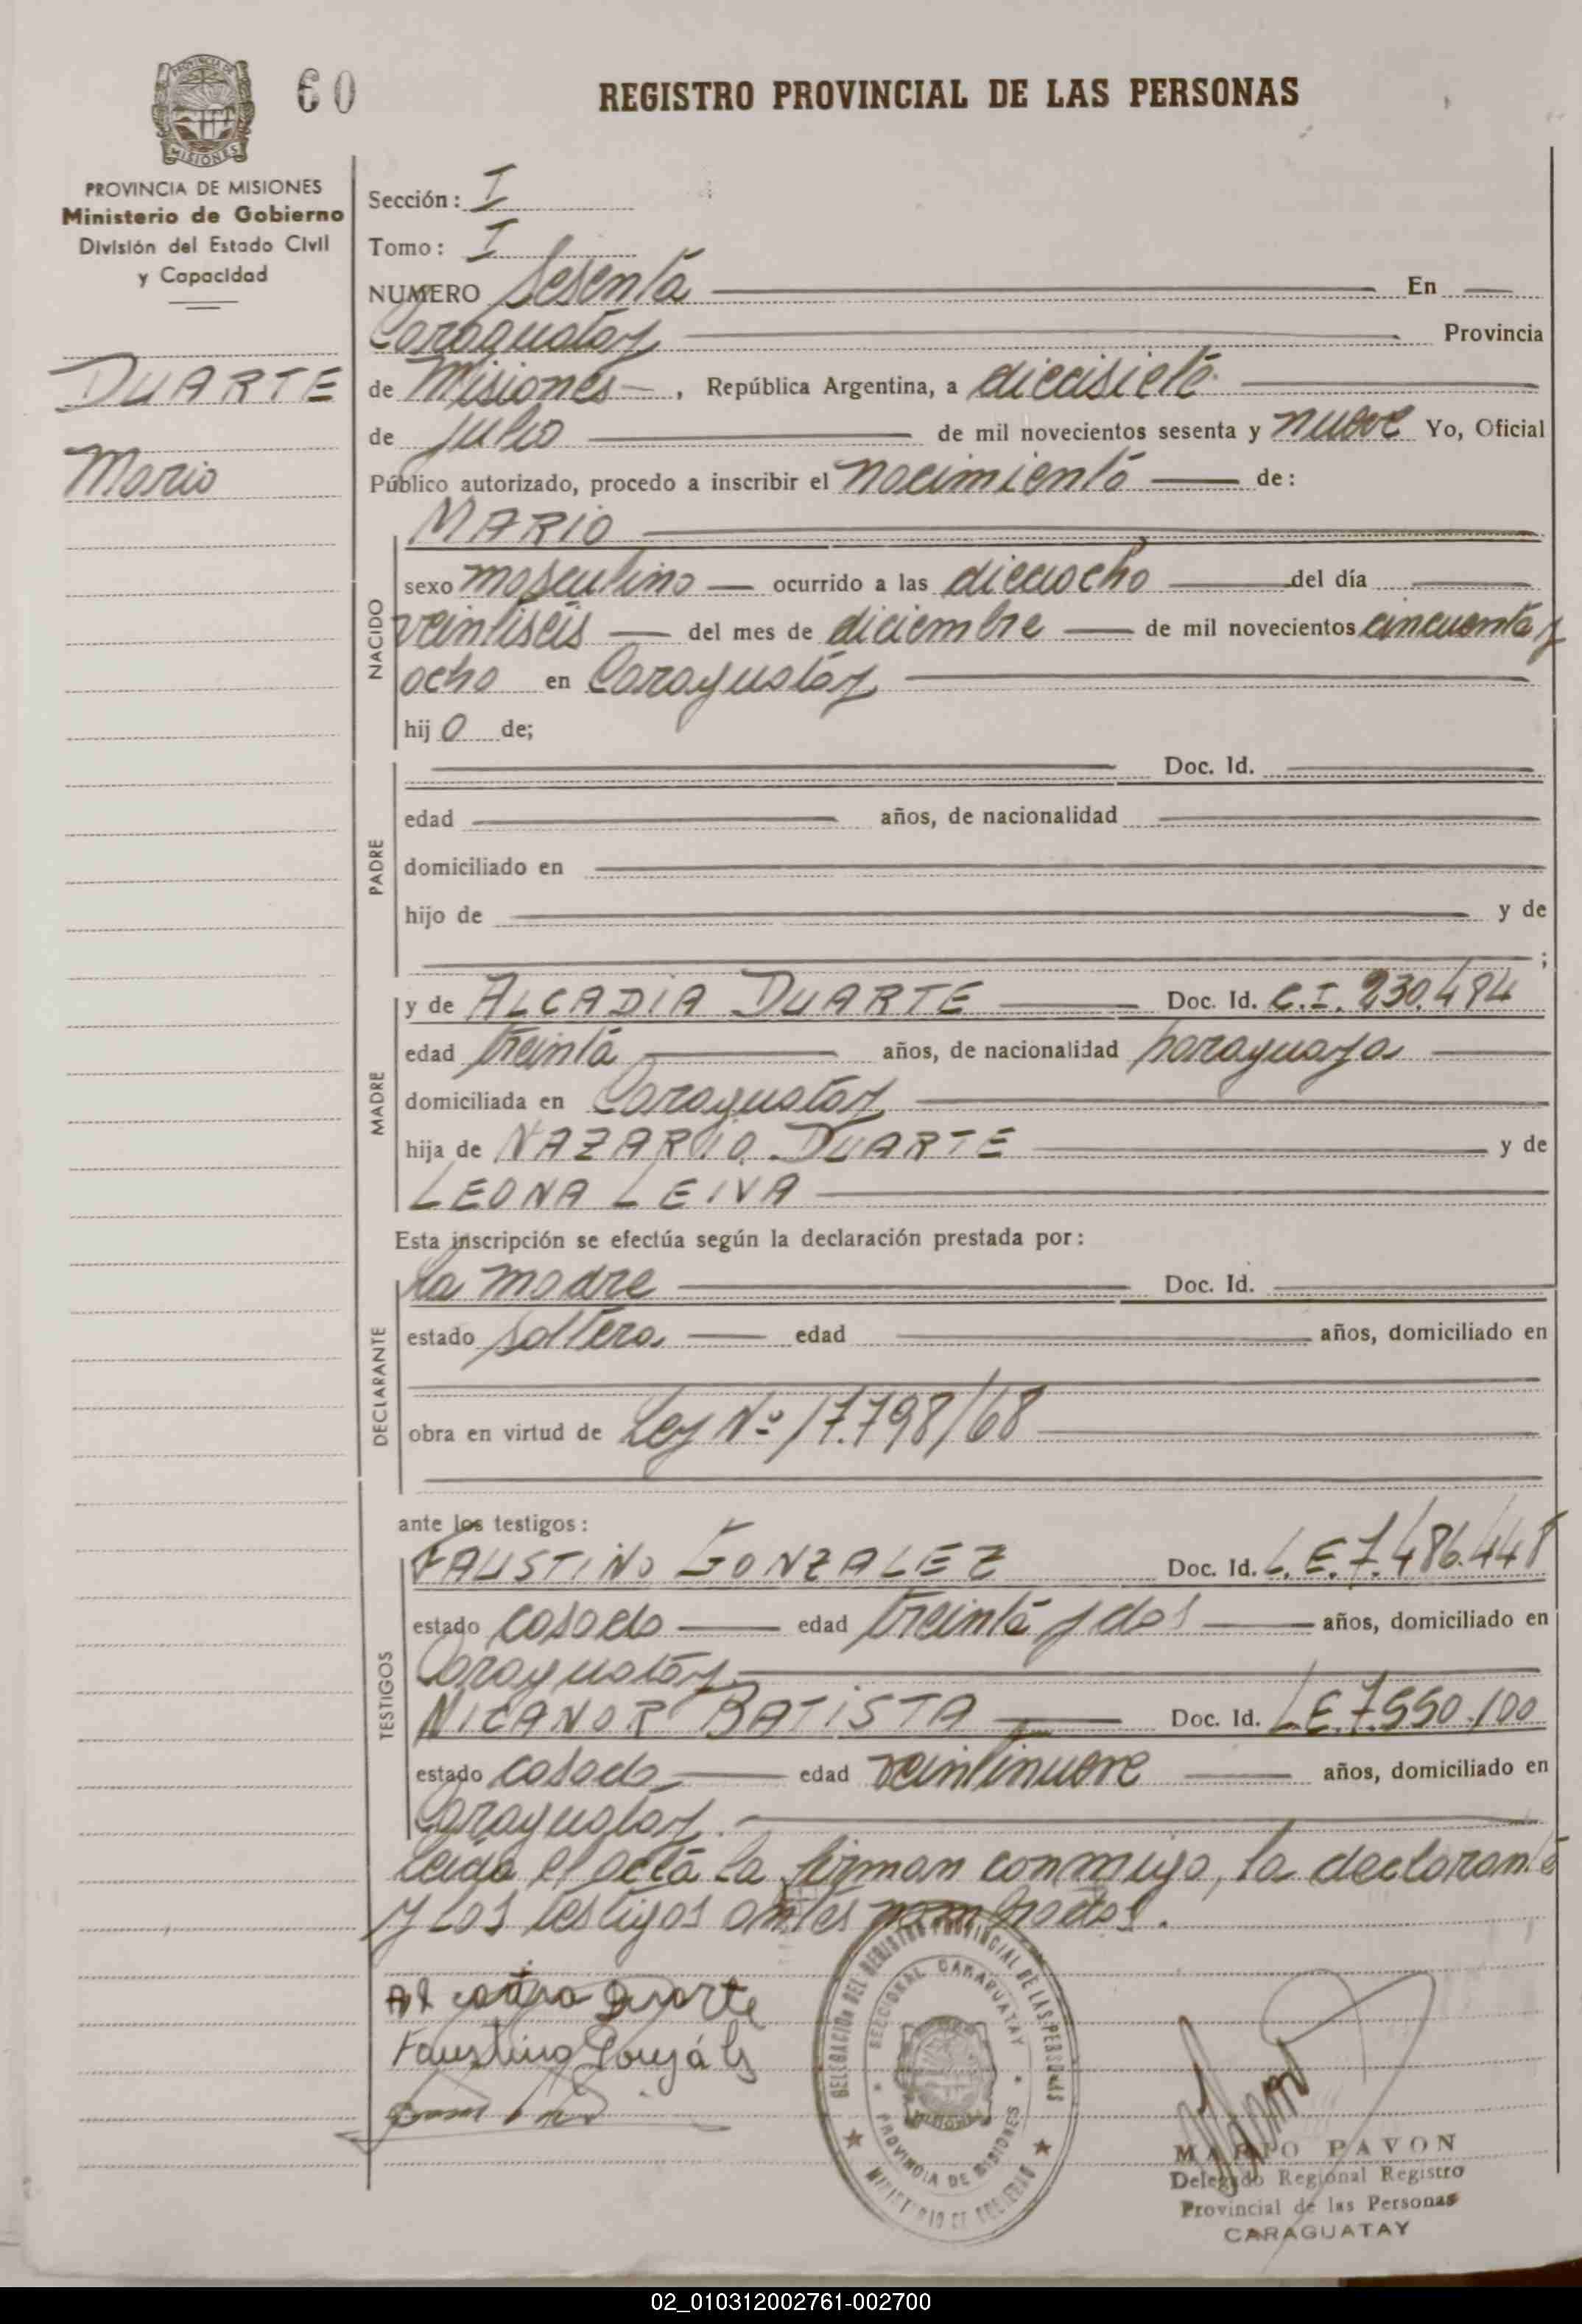 60
REGISTRO PROVINCIAL DE LAS PERSONAS
PROVINCIA DE MISIONES
MISIONES
PROVINCIA DE MISIONES
Ministerio de Gobierno
División del Estado Civil
y Capacidad
DUARTE
Mario
Sección: I
Tomo: I
NUMERO Sesenta En
Caraguatay Provincia
de Misiones, República Argentina, a diecisiete
de julio de mil novecientos sesenta y nueve Yo, Oficial
Público autorizado, procedo a inscribir el nacimiento de:
NACIDO
MARIO
sexo masculino ocurrido a las dieciocho del día
veintiseis del mes de diciembre de mil novecientos cincuenta y
ocho en Caraguatay
hij o de;
PADRE
Doc. Id.
edad años, de nacionalidad
domiciliado en
hijo de y de
;
MADRE
y de ALCADIA DUARTE Doc. Id. C.I. 230.494
edad treinta años, de nacionalidad paraguaya
domiciliada en Caraguatay
hija de NAZARIO DUARTE y de
LEONA LEIVA
Esta inscripción se efectúa según la declaración prestada por:
DECLARANTE
la madre Doc. Id.
estado soltera edad años, domiciliado en
obra en virtud de Ley Nº 17.798/68
ante los testigos:
TESTIGOS
FAUSTINO GONZALEZ Doc. Id. L.E. 7.486.448
estado casado edad treinta y dos años, domiciliado en
Caraguatay
NICANOR BATISTA Doc. Id. L.E. 7.550.100
estado casado edad veintinueve años, domiciliado en
Caraguatay.
leida el acta la firman conmigo, la declarante
y los testigos antes nombrados.
Alcadia Duarte
Faustino Gonzáles
DELEGACION DEL REGISTRO PROVINCIAL DE LAS PERSONAS
SECCIONAL CARAGUATAY
PROVINCIA DE MISIONES
MINISTERIO DE GOBIERNO
MARIO PAVON
Delegado Regional Registro
Provincial de las Personas
CARAGUATAY
02_010312002761-002700